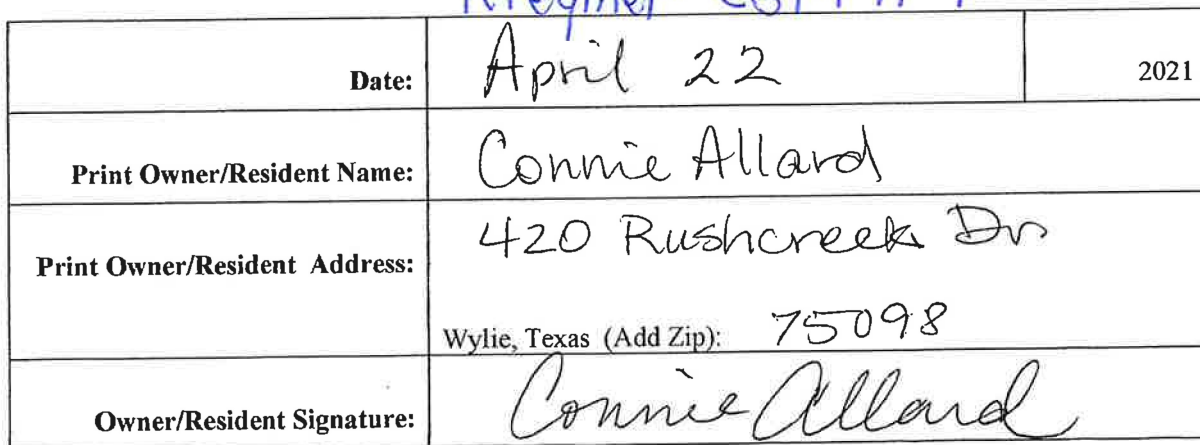 Date: April 22 2021
Print Owner/Resident Name: Connie Allard
Print Owner/Resident Address: 420 Rushcreek Dr
Wylie, Texas (Add Zip): 75098
Owner/Resident Signature: Connie Allard